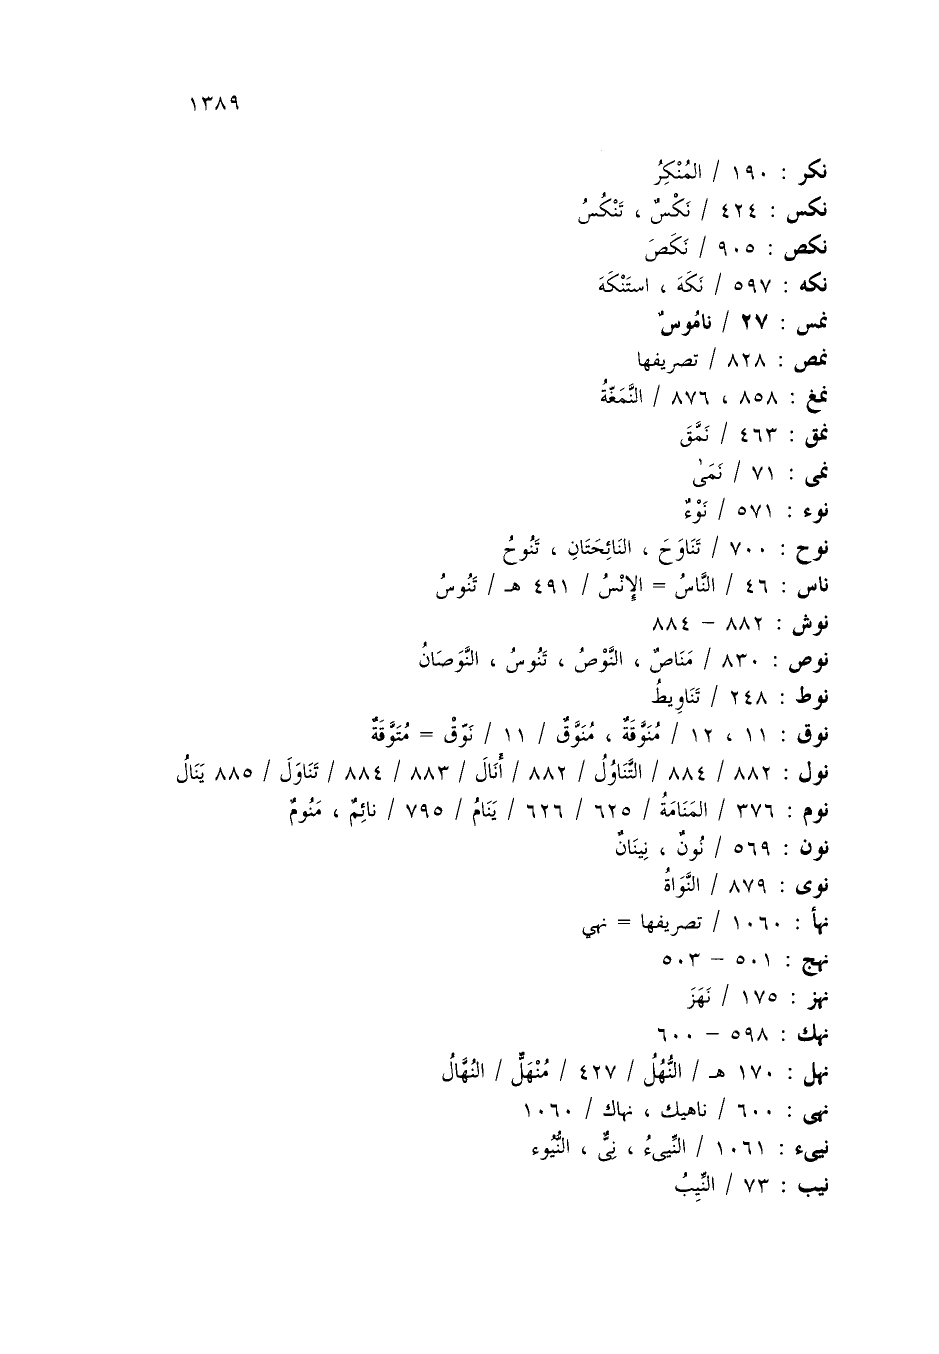 ١٣٨٩
نكر : ١٩٠ / المُنْكِرُ
نكس : ٤٢٤ / نَكْسٌ ، تَنْكُسُ
نكص : ٩٠٥ / نَكَصَ
نكه : ٥٩٧ / نَكَهَ ، استَنْكَهَ
نمس : ٢٧ / نامُوسٌ
نمص : ٨٢٨ / تصريفها
نمغ : ٨٥٨ ، ٨٧٦ / النَّمَغّةُ
نمق : ٤٦٣ / نَمَّقَ
نمى : ٧١ / نَمَىٰ
نوء : ٥٧١ / نَوْءٌ
نوح : ٧٠٠ / تَنَاوَحَ ، النَائِحَتَانِ ، تَنُوحُ
ناس : ٤٦ / النَّاسُ = الإِنْسُ / ٤٩١ هـ / تَنُوسُ
نوش : ٨٨٢ – ٨٨٤
نوص : ٨٣٠ / مَنَاصٌ ، النَّوْصُ ، تَنُوسُ ، النَّوَصَانُ
نوط : ٢٤٨ / تَنَاوِيطُ
نوق : ١١ ، ١٢ / مُنَوَّقَةٌ ، مُنَوَّقٌ / ١١ / نَوّقْ = مُتَوَّقَةٌ
نول : ٨٨٢ / ٨٨٤ / التَّنَاوُلُ / ٨٨٢ / أَنَالَ / ٨٨٣ / ٨٨٤ / تَنَاوَلَ / ٨٨٥ يَنَالُ
نوم : ٣٧٦ / المَنَامَةُ / ٦٢٥ / ٦٢٦ / يَنَامُ / ٧٩٥ / نائِمٌ ، مَنُومٌ
نون : ٥٦٩ / نُونٌ ، نِينَانٌ
نوى : ٨٧٩ / النَّوَاةُ
نهأ : ١٠٦٠ / تصريفها = نهي
نهج : ٥٠١ – ٥٠٣
نهز : ١٧٥ / نَهَزَ
نهك : ٥٩٨ – ٦٠٠
نهل : ١٧٠ هـ / النُّهُلُ / ٤٢٧ / مُنْهَلٌّ / النُهَّالُ
نهى : ٦٠٠ / ناهيك ، نهاك / ١٠٦٠
نيىء : ١٠٦١ / النِّيىءُ ، نِيٌّ ، النُّيُوء
نيب : ٧٣ / النِّيِبُ